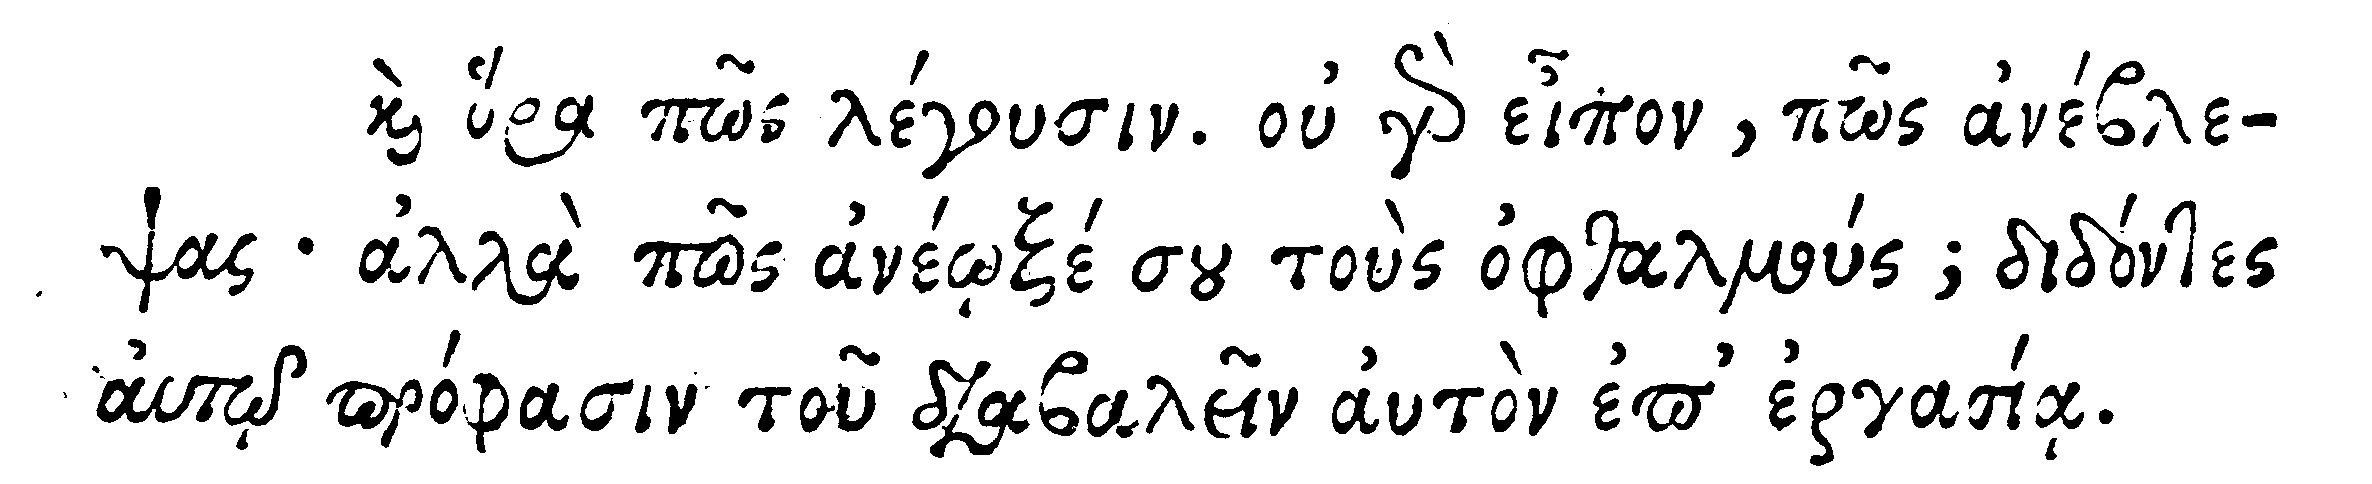 κὶ ὅρα πῶς λέγουσιν. οὐ γὰρ εἶπον, πῶς ἀνέβλε-
ψας · ἀλλὰ πῶς ἀνέῳξέ σου τοὺς ὀφθαλμούς; διδόντες
ἀυτῷ πρόφασιν τοῦ διαβαλεῖν ἀυτὸν ἐπ’ ἐργασίᾳ.